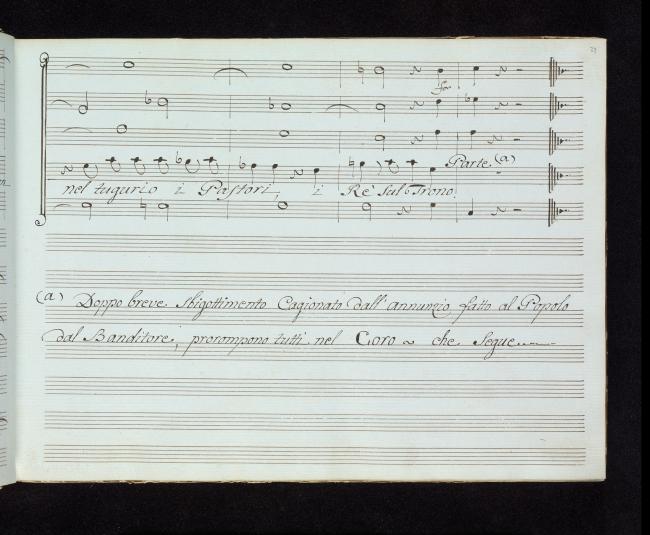 for
Parte. (a)
nel tugurio i Pastori, i Rè sul Trono.
(a) Doppo breve sbigottimento Cagionato dall'annunzio, fatto al Popolo
dal Banditore, prorompono tutti nel Coro ~ che segue.